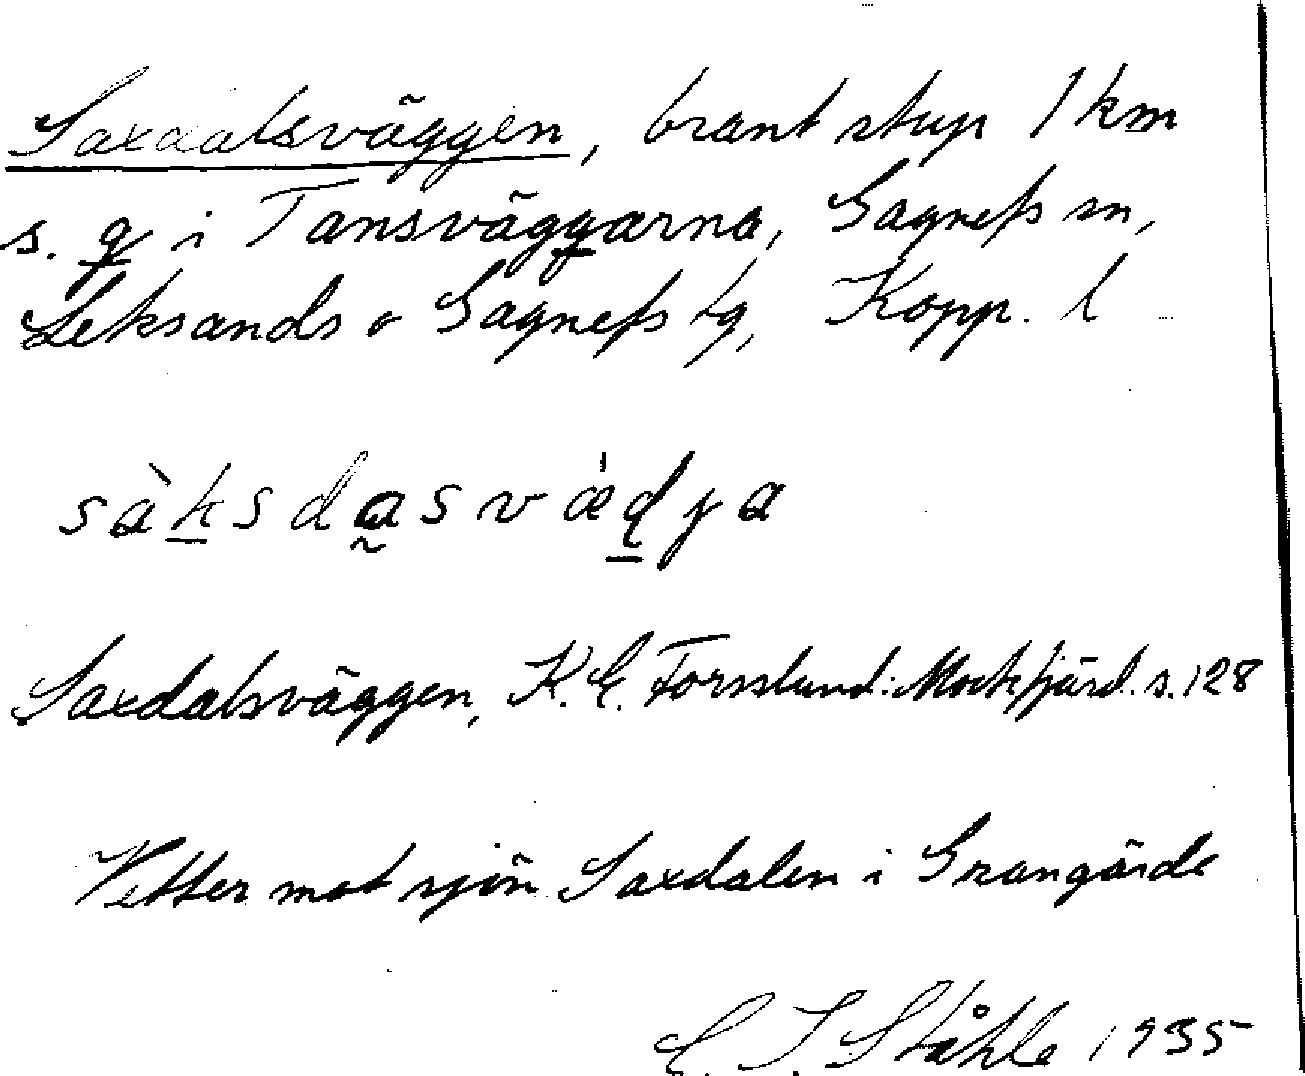 Saxdalsväggen, brant stup 1 km
s. g i Tansväggarna, Gagnefs sn,
Leksands o Gagnefs tg, Kopp. l
sàksdasvædya
Saxdalsväggen, K. E. Forsslund: Mockfjärd. s. 128
Vetter mot sjön Saxdalen i Grangärde
C. I. Ståhle 1935